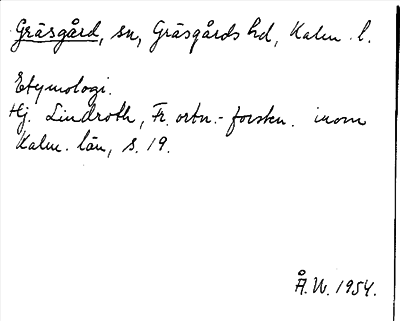 Gräsgård, sn, Gräsgårds hd, Kalm. l.
Etymologi.
Hj. Lindroth, Fr. ortn.-forskn. inom
Kalm. län, s. 19.
Å.W. 1954.